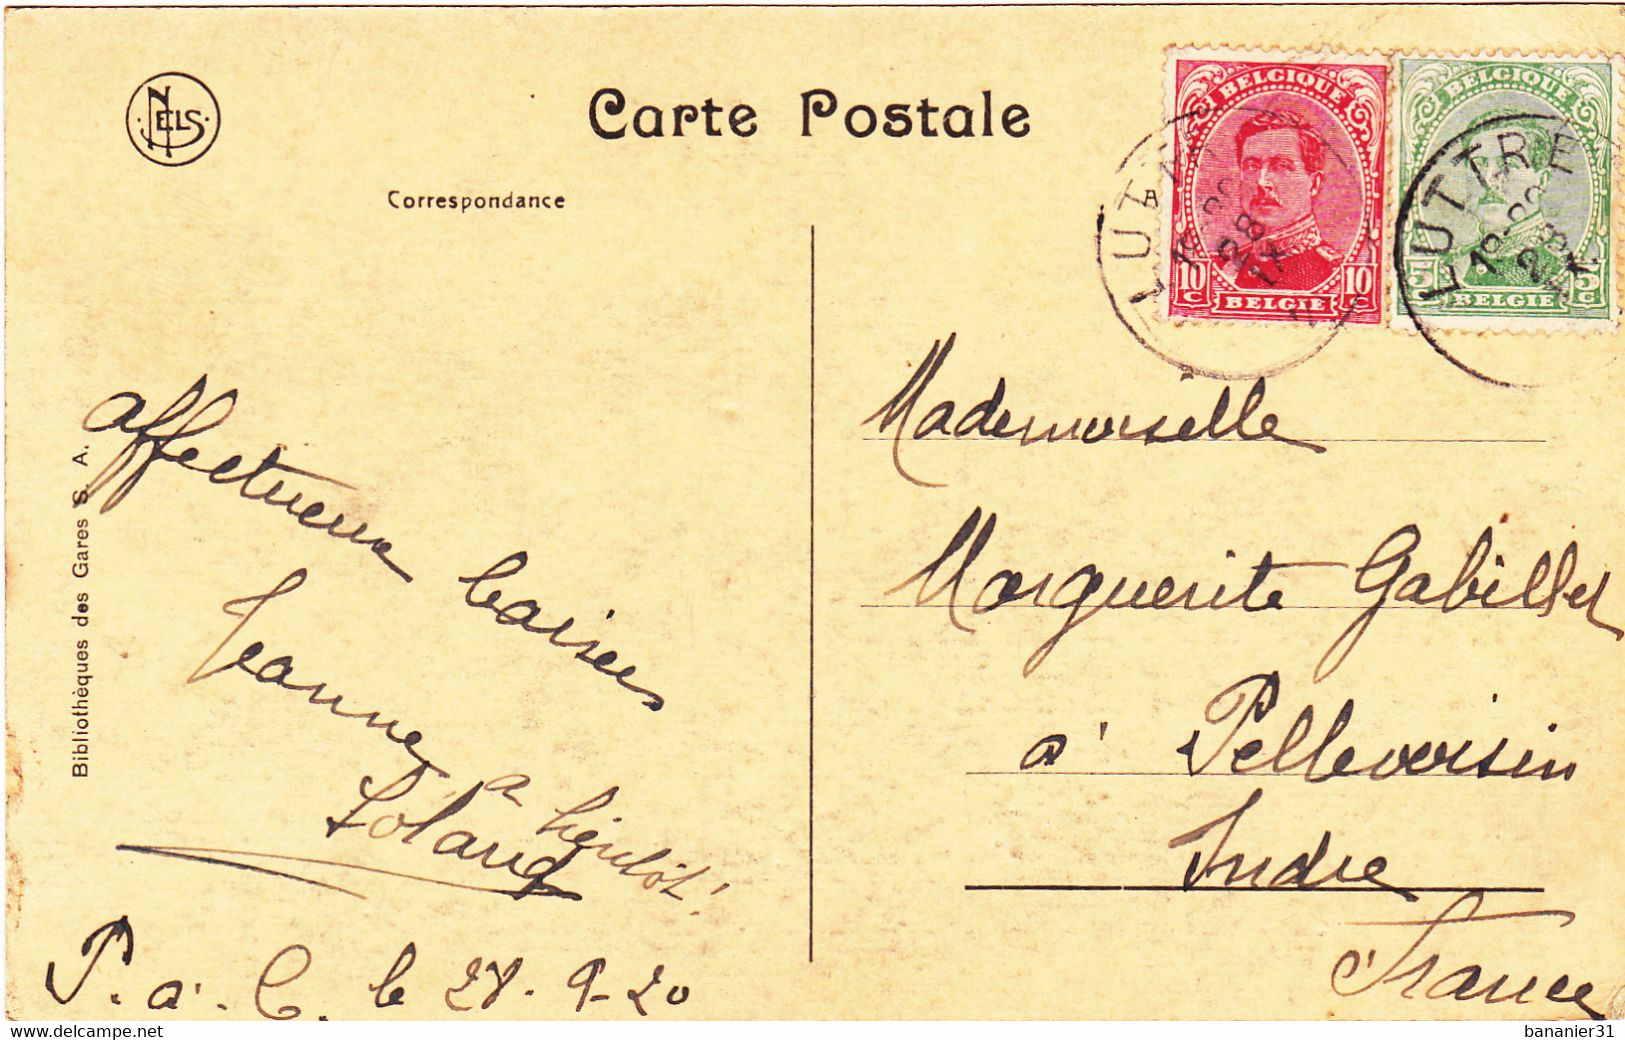 NELS
Carte Postale
Correspondance
A
BELGIQUE
10 C 10 C
BELGIE
BELGIQUE
5 C 5 C
BELGIE
LUTTRE
LUTTRE
Bibliothèques des Gares S. A.
affectueux baisers
Jeanne
a bientôt!
P. à. C. le 28-9-20
Mademoiselle
Marguerite Gabillet
à Pellevoisin
Indre
France
bananier31